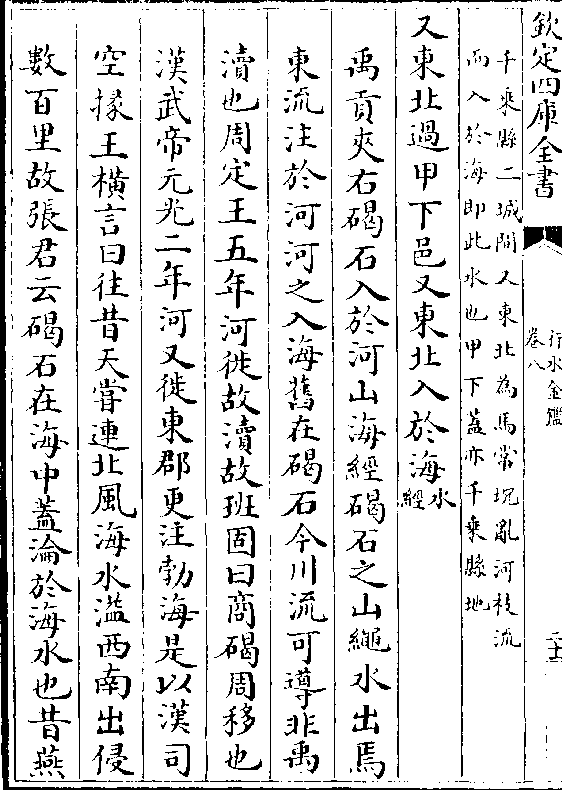 欽定四庫全書
行水金鑑
卷八
二十二
千乘縣二城間又東北為馬常坈亂河枝流
而入於海即此水也甲下蓋亦千乘縣地
又東北過甲下邑又東北入於海水經
禹貢夾右碣石入於河山海經碣石之山繩水出焉
東流注於河河之入海舊在碣石今川流可導非禹
瀆也周定王五年河徙故瀆故班固曰商碣周移也
漢武帝元光二年河又徙東郡更注勃海是以漢司
空掾王横言曰往昔天嘗連北風海水溢西南出侵
數百里故張君云碣石在海中蓋淪於海水也昔燕